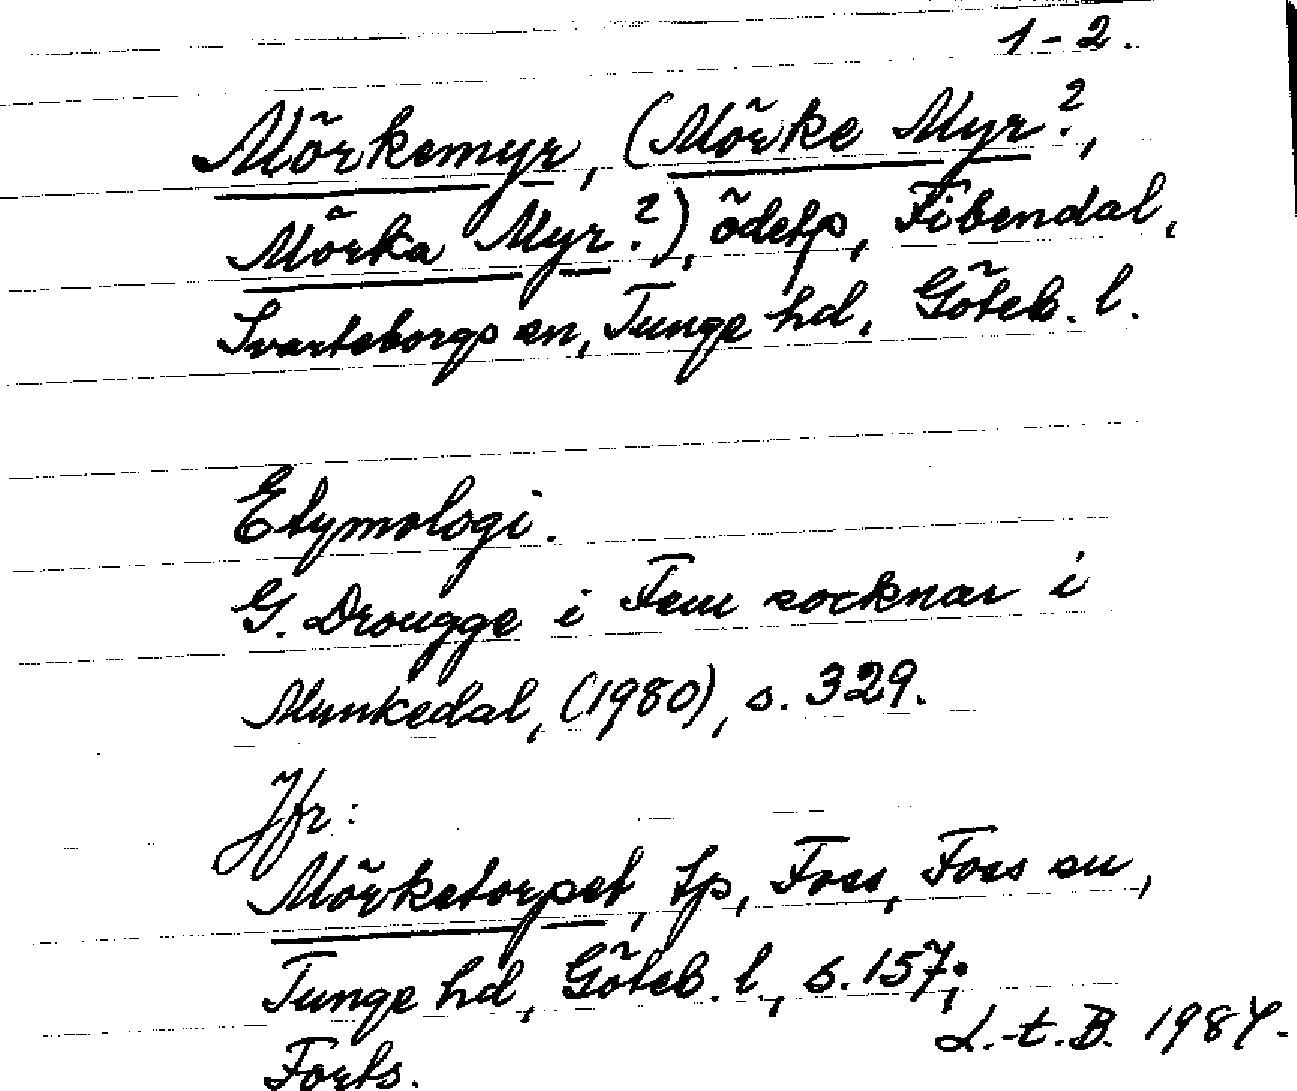 1-2.
Mörkemyr, (Mörke Myr?,
Mörka Myr?), ödetp, Fibendal,
Svarteborgs sn, Tunge hd, Göteb. l.
Etymologi.
G. Drougge i Fem socknar i
Munkedal, (1980), s. 329.
Jfr:
Mörketorpet, tp, Foss, Foss sn,
Tunge hd, Göteb. l, s. 157;
L.-t.B. 1984.
Forts.